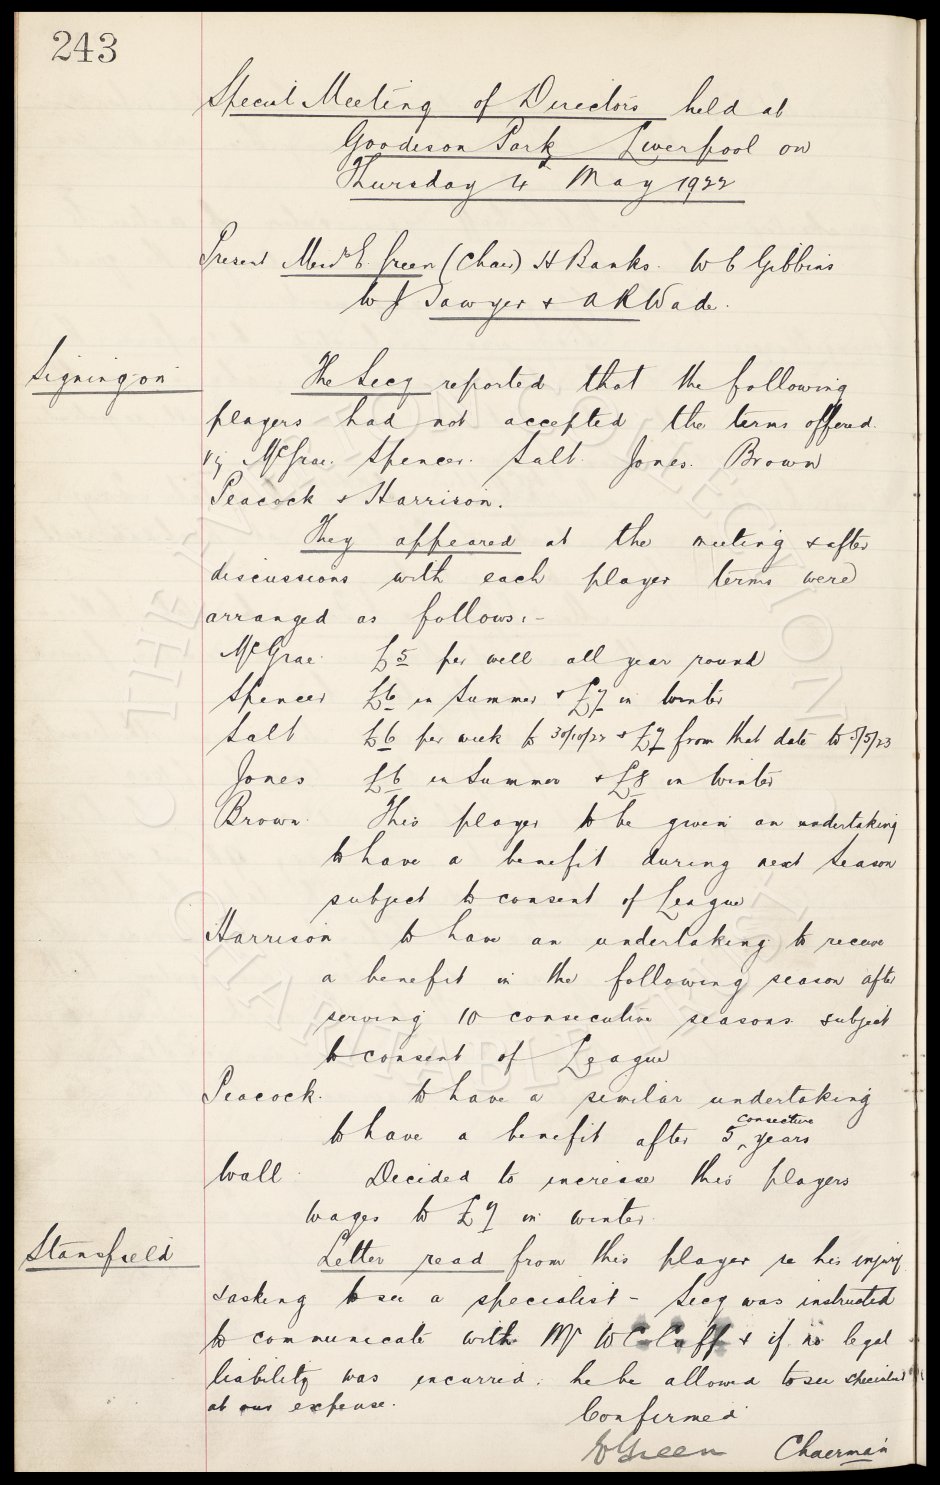 243
Special Meeting of Directors held at
Goodison Park Liverpool on
Thursday 4th May 1922
Present Messrs E. Green (Chair) H Banks. W C Gibbins
W J Sawyer & A R Wade.
Signing on
The Secy reported that the following
players had not accepted the terms offered.
viz McGrae. Spencer. Salt. Jones. Brown
Peacock & Harrison.
They appeared at the meeting & after
discussions with each player terms were
arranged as follows:-
McGrae. £5 per well all year round
Spencer £6 in Summer & £7 in Winter
Salt £6 per week to 30/10/22 & £7 from that date to 5/5/23
Jones £6 in Summer & £8 in Winter
Brown. This player to be given an undertaking
to have a benefit during next Season
subject to consent of League
Harrison to have an undertaking to receive
a benefit in the following season after
serving 10 consecutive seasons subject
to consent of League
Peacock. to have a similar undertaking
to have a benefit after 5 consective years
Wall. Decided to increase this players
wages to £7 in winter.
Stansfield
Letter read from this player re his injury
& asking to see a specialist - Secy was instructed
to communicate with Mr W C Cuff & if no legal
liability was incurred. he be allowed to see specialist
at our expense.
Confirmed
E Green Chairman
THE EVERTON FC COLLECTION
CHARITABLE TRUST